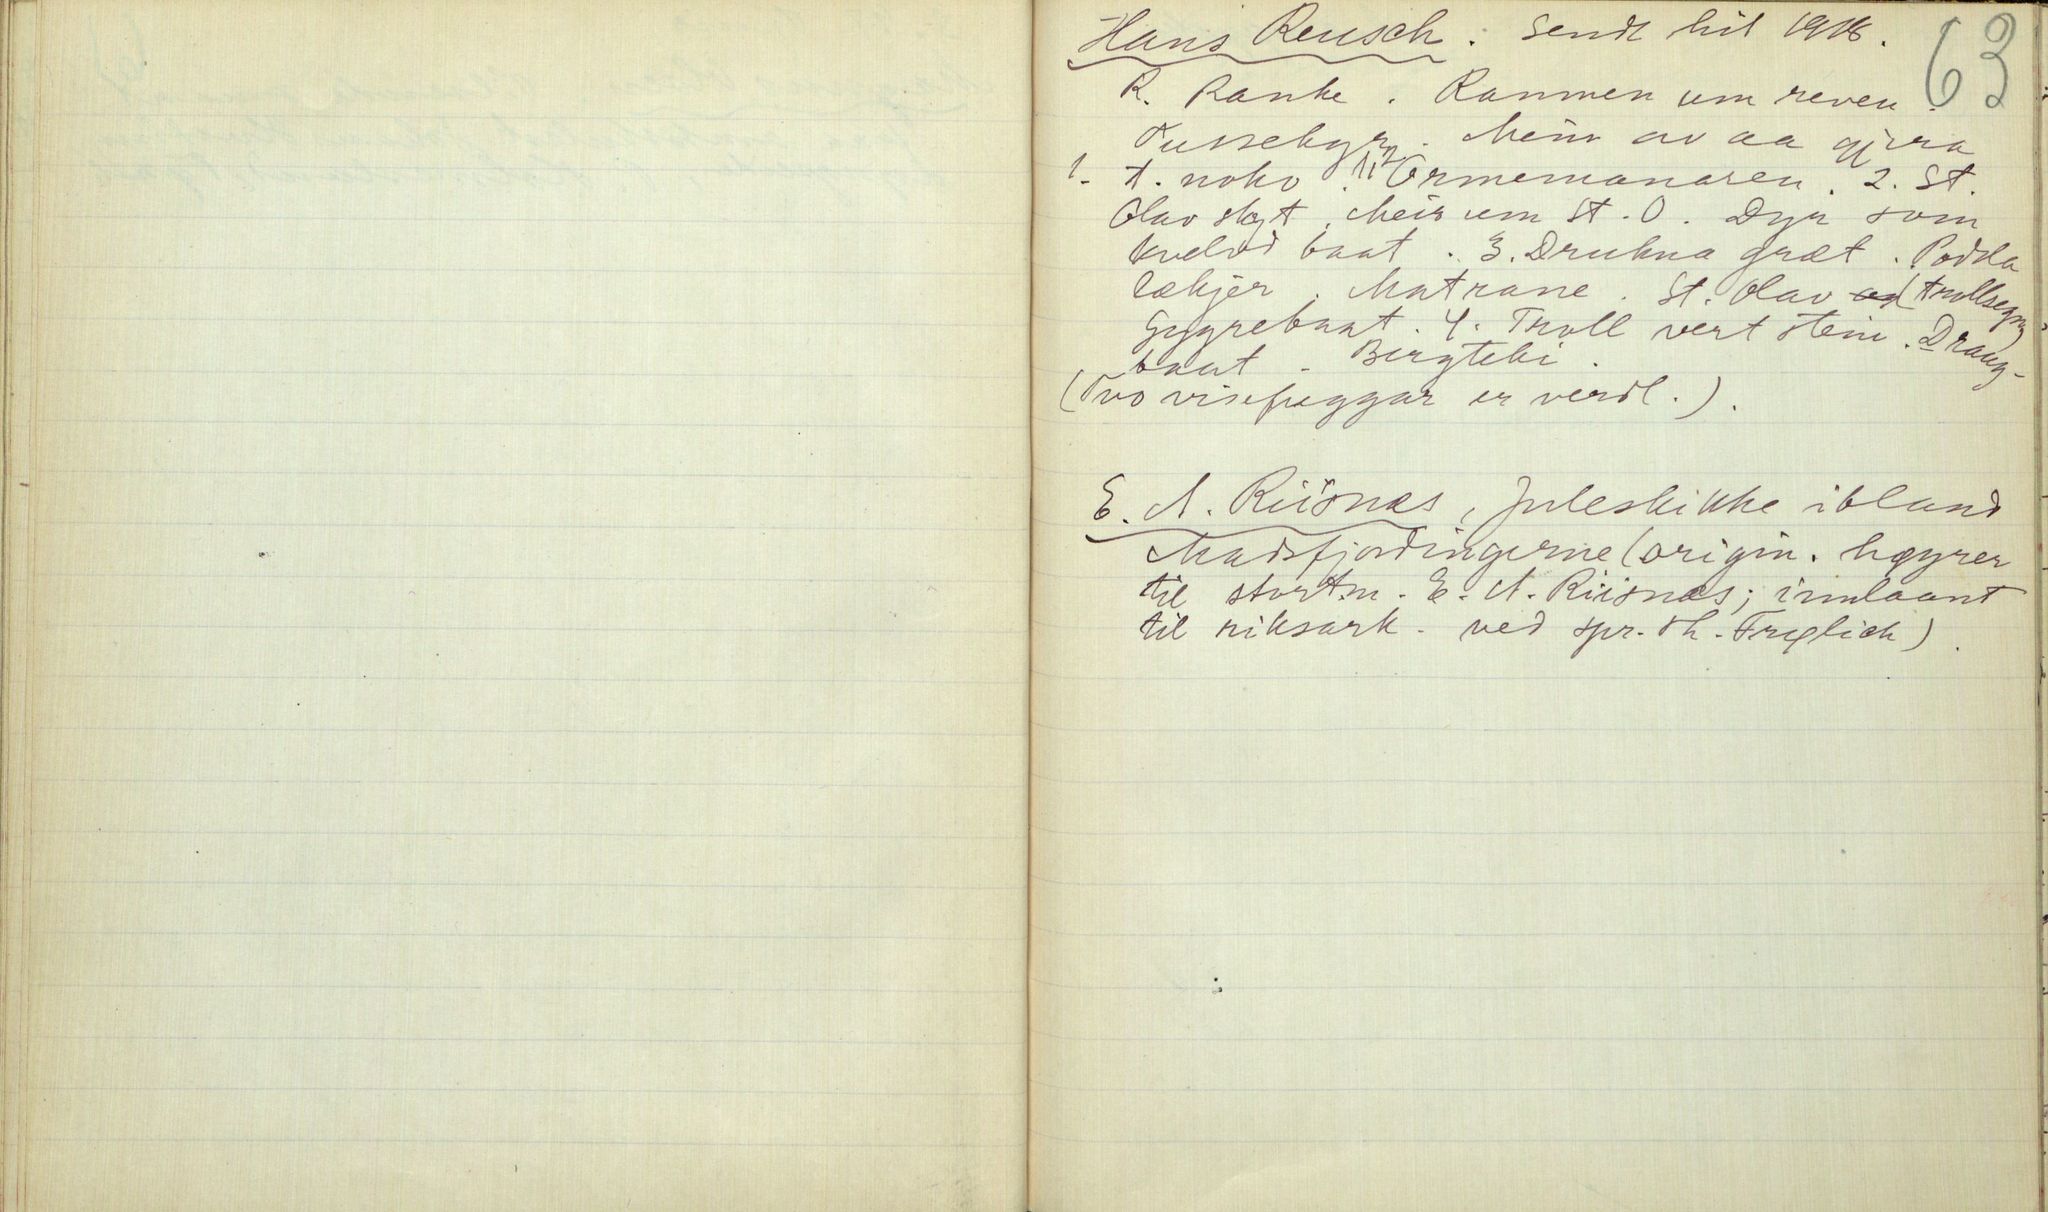 63
Hans Reusch. Sendt hit 1918.
R. Ranke. Rammen um reven.
Tussekyr. Mein av aa gjera
1. t. noko. Ormemanaren. 2. St.
Olav skyt. Meir um St. O. Dyr som
kvelvd baat. 3. Drukna græt. Podda
lækjer. Matrane. St. Olav (trollsegn)
Gygrebaat. 4. Troll vert stein. Draug-
baat. Bergteki.
(Tvo viseheggar er verdl.).
E. A. Riisnæs, Juleskikke ibland
Madsfjordingerne (origin. høyrer
til stortm. E. A. Riisnæs; innlaant
til riksark. ved spr. Th. Frølich)